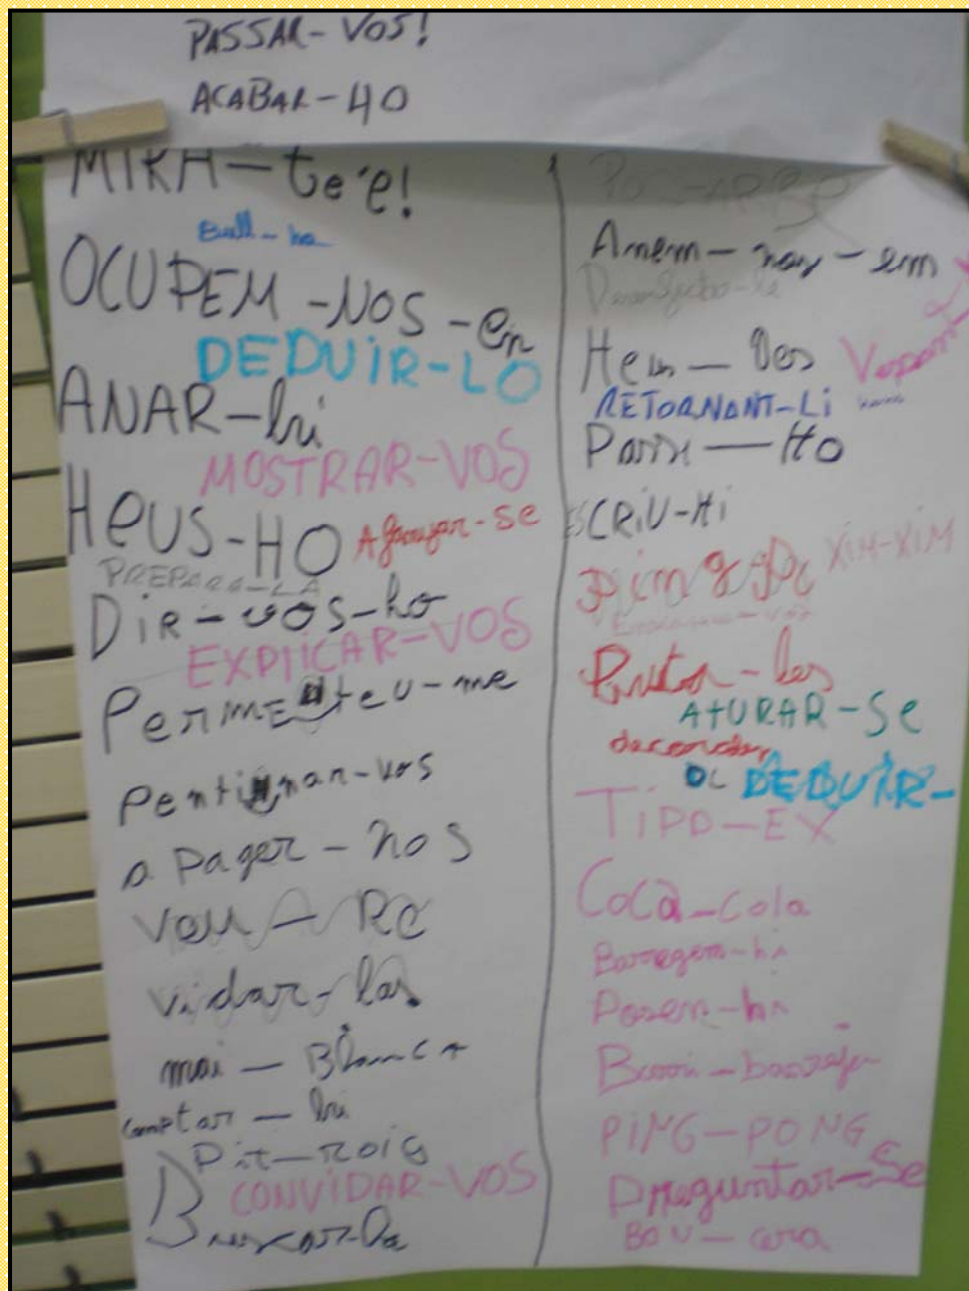 PASSAR-VOS!
ACABAR-HO
MIRA-te'e!
Bull-ho
OCUPEM-NOS-en
DEDUIR-LO
ANAR-hi
MOSTRAR-VOS
HEUS-HO
Afanyar-se
PREPARA-LA
DiR-vos-ho
EXPLICAR-VOS
Permeteu-me
pentinar-vos
a pager-nos
veu-RE
vidar-las
mai-BlancA
comptar-hi
Pit-roig
CONVIDAR-VOS
Buscar-la
Anem-nos-em
Heus-les
RETORNANT-Li
Passi-HO
ESCRiU-Hi
XIM-XIM
Pinta-les
ATURAR-Se
DEDUIR-
TiPO-EX
CoCa-Cola
Barregem-hi
Posem-hi
Barri-barreja
PiNG-PONG
Preguntar-Se
BOU-cera